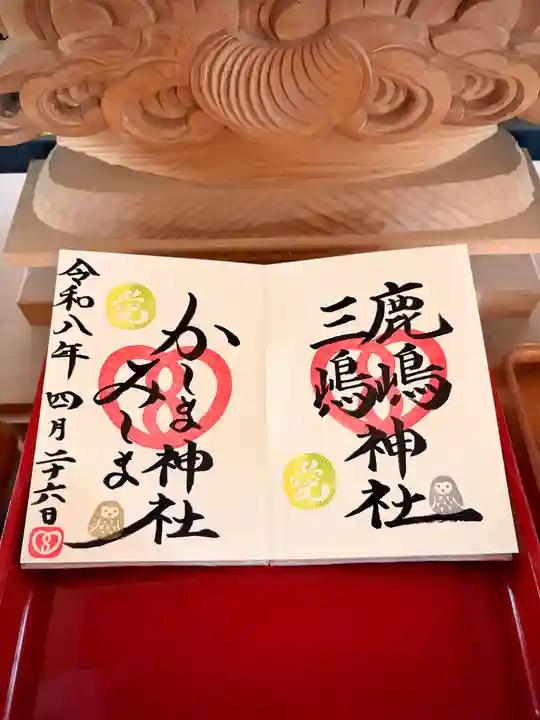 鹿嶋
三嶋
神社
覚
かしま
みしま
神社
覚
令和八年 四月二十六日